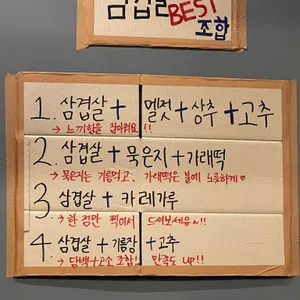 삼겹살 BEST
조합
1. 삼겹살 + 멜젓 + 상추 + 고추
→ 느끼함을 잡아줘요!!
2. 삼겹살 + 묵은지 + 가래떡
→ 묵은지는 기름먹고, 가래떡은 불에 노릇하게♡
3 삼겹살 + 카레가루
→ 한 점만 찍어서 드셔보세요~!!
4. 삼겹살 + 기름장 + 고추
→ 담백+고소 조합! 만족도 UP!!